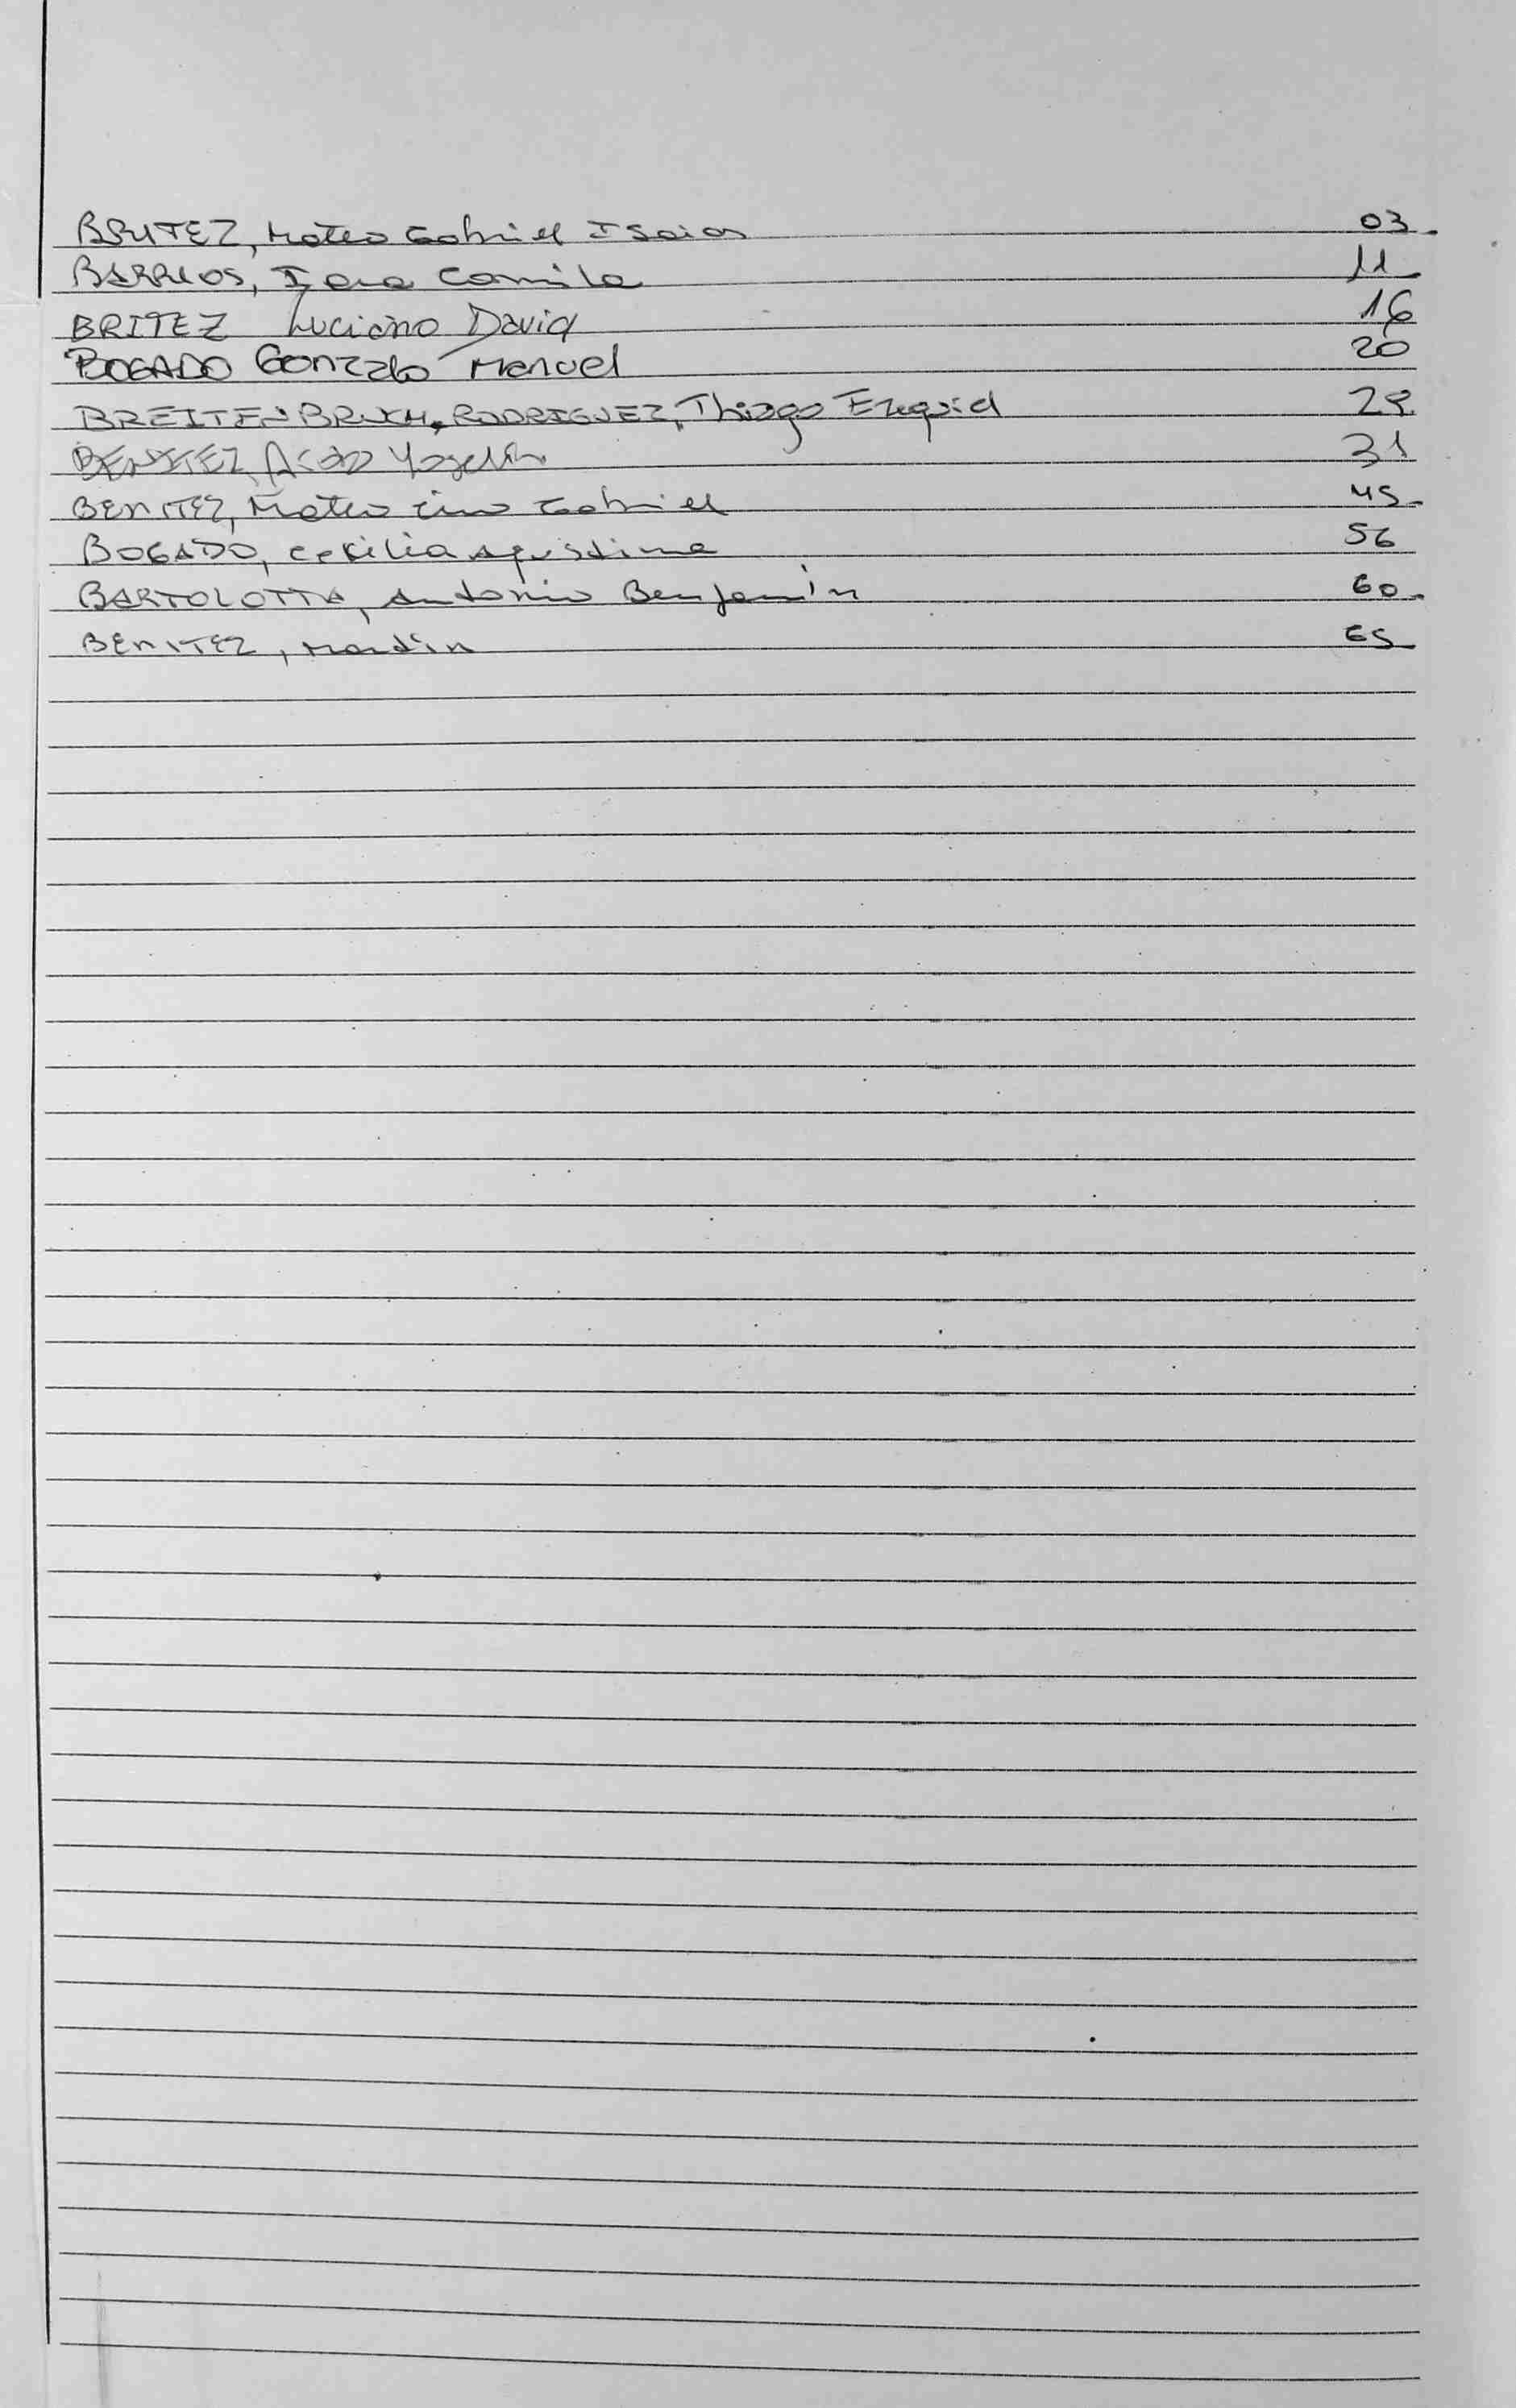 BRITEZ, Mateo Gabriel Isaias 03.
BARRIOS, Iara Camila 11
BRITEZ Luciano David 16
BOGADO Gonzalo Manuel 20
BREITENBRUCH, RODRIGUEZ, Thiago Ezequiel
BENITEZ 31
BENITEZ, Mateo Gabriel 45
BOGADO, Cecilia Agustina 56
BARTOLOTTA, Antonio Benjamín 60.
BENITEZ, Martín 65